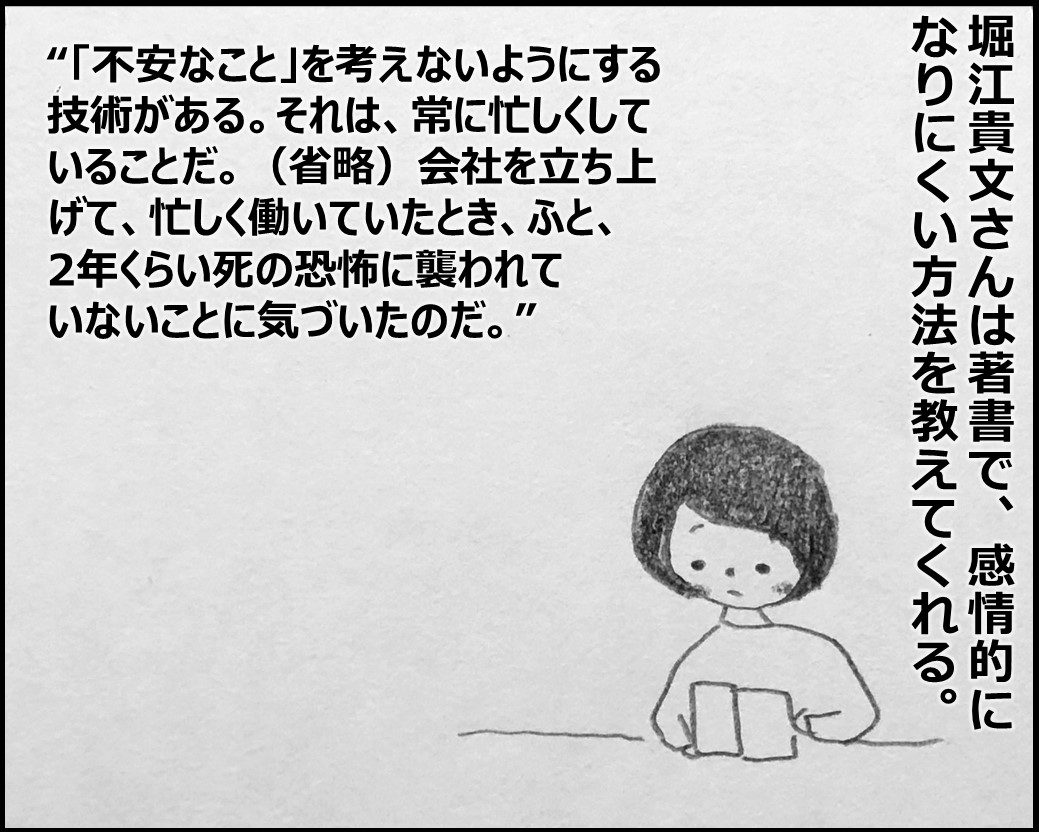 堀江貴文さんは著書で、感情的に
なりにくい方法を教えてくれる。
“「不安なこと」を考えないようにする
技術がある。それは、常に忙しくして
いることだ。（省略）会社を立ち上
げて、忙しく働いていたとき、ふと、
2年くらい死の恐怖に襲われて
いないことに気づいたのだ。”